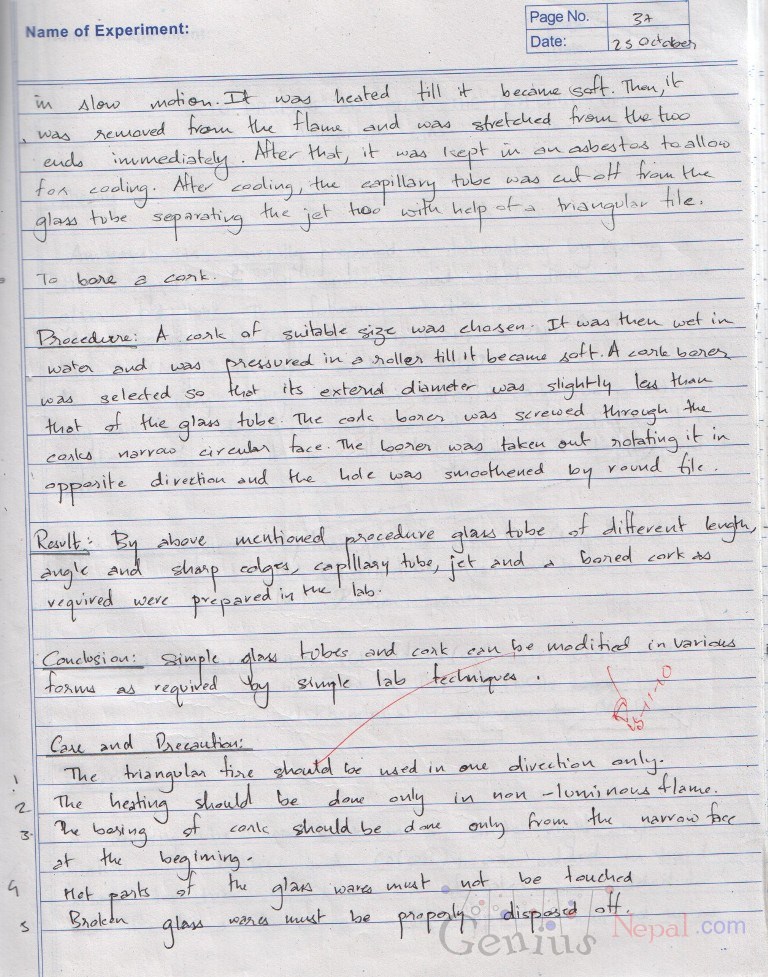 Name of Experiment:
Page No. 37
Date: 25 October
in slow motion. It was heated till it became soft. Then, it
was removed from the flame and was stretched from the two
ends immediately. After that, it was kept in an asbestos to allow
for cooling. After cooling, the capillary tube was cut off from the
glass tube separating the jet too with help of a triangular file.
To bore a cork.
Procedure: A cork of suitable size was chosen. It was then wet in
water and was pressured in a roller till it became soft. A cork borer
was selected so that its externd diameter was slightly less than
that of the glass tube. The cork borer was screwed through the
corks narrow circular face. The borer was taken out rotating it in
opposite direction and the hole was smoothened by round file.
Result: By above mentioned procedure glass tube of different length,
angle and sharp edges, capillary tube, jet and a bored cork as
required were prepared in the lab.
Conclusion: Simple glass tubes and cork can be modified in various
forms as required by simple lab techniques.
Care and Precaution:
1 The triangular fire should be used in one direction only.
2 The heating should be done only in non-luminous flame.
3. The boring of cork should be done only from the narrow face
at the begiming.
4 Hot parts of the glass wares must not be touched
5 Broken glass wares must be properly disposed off.
Genius Nepal.com